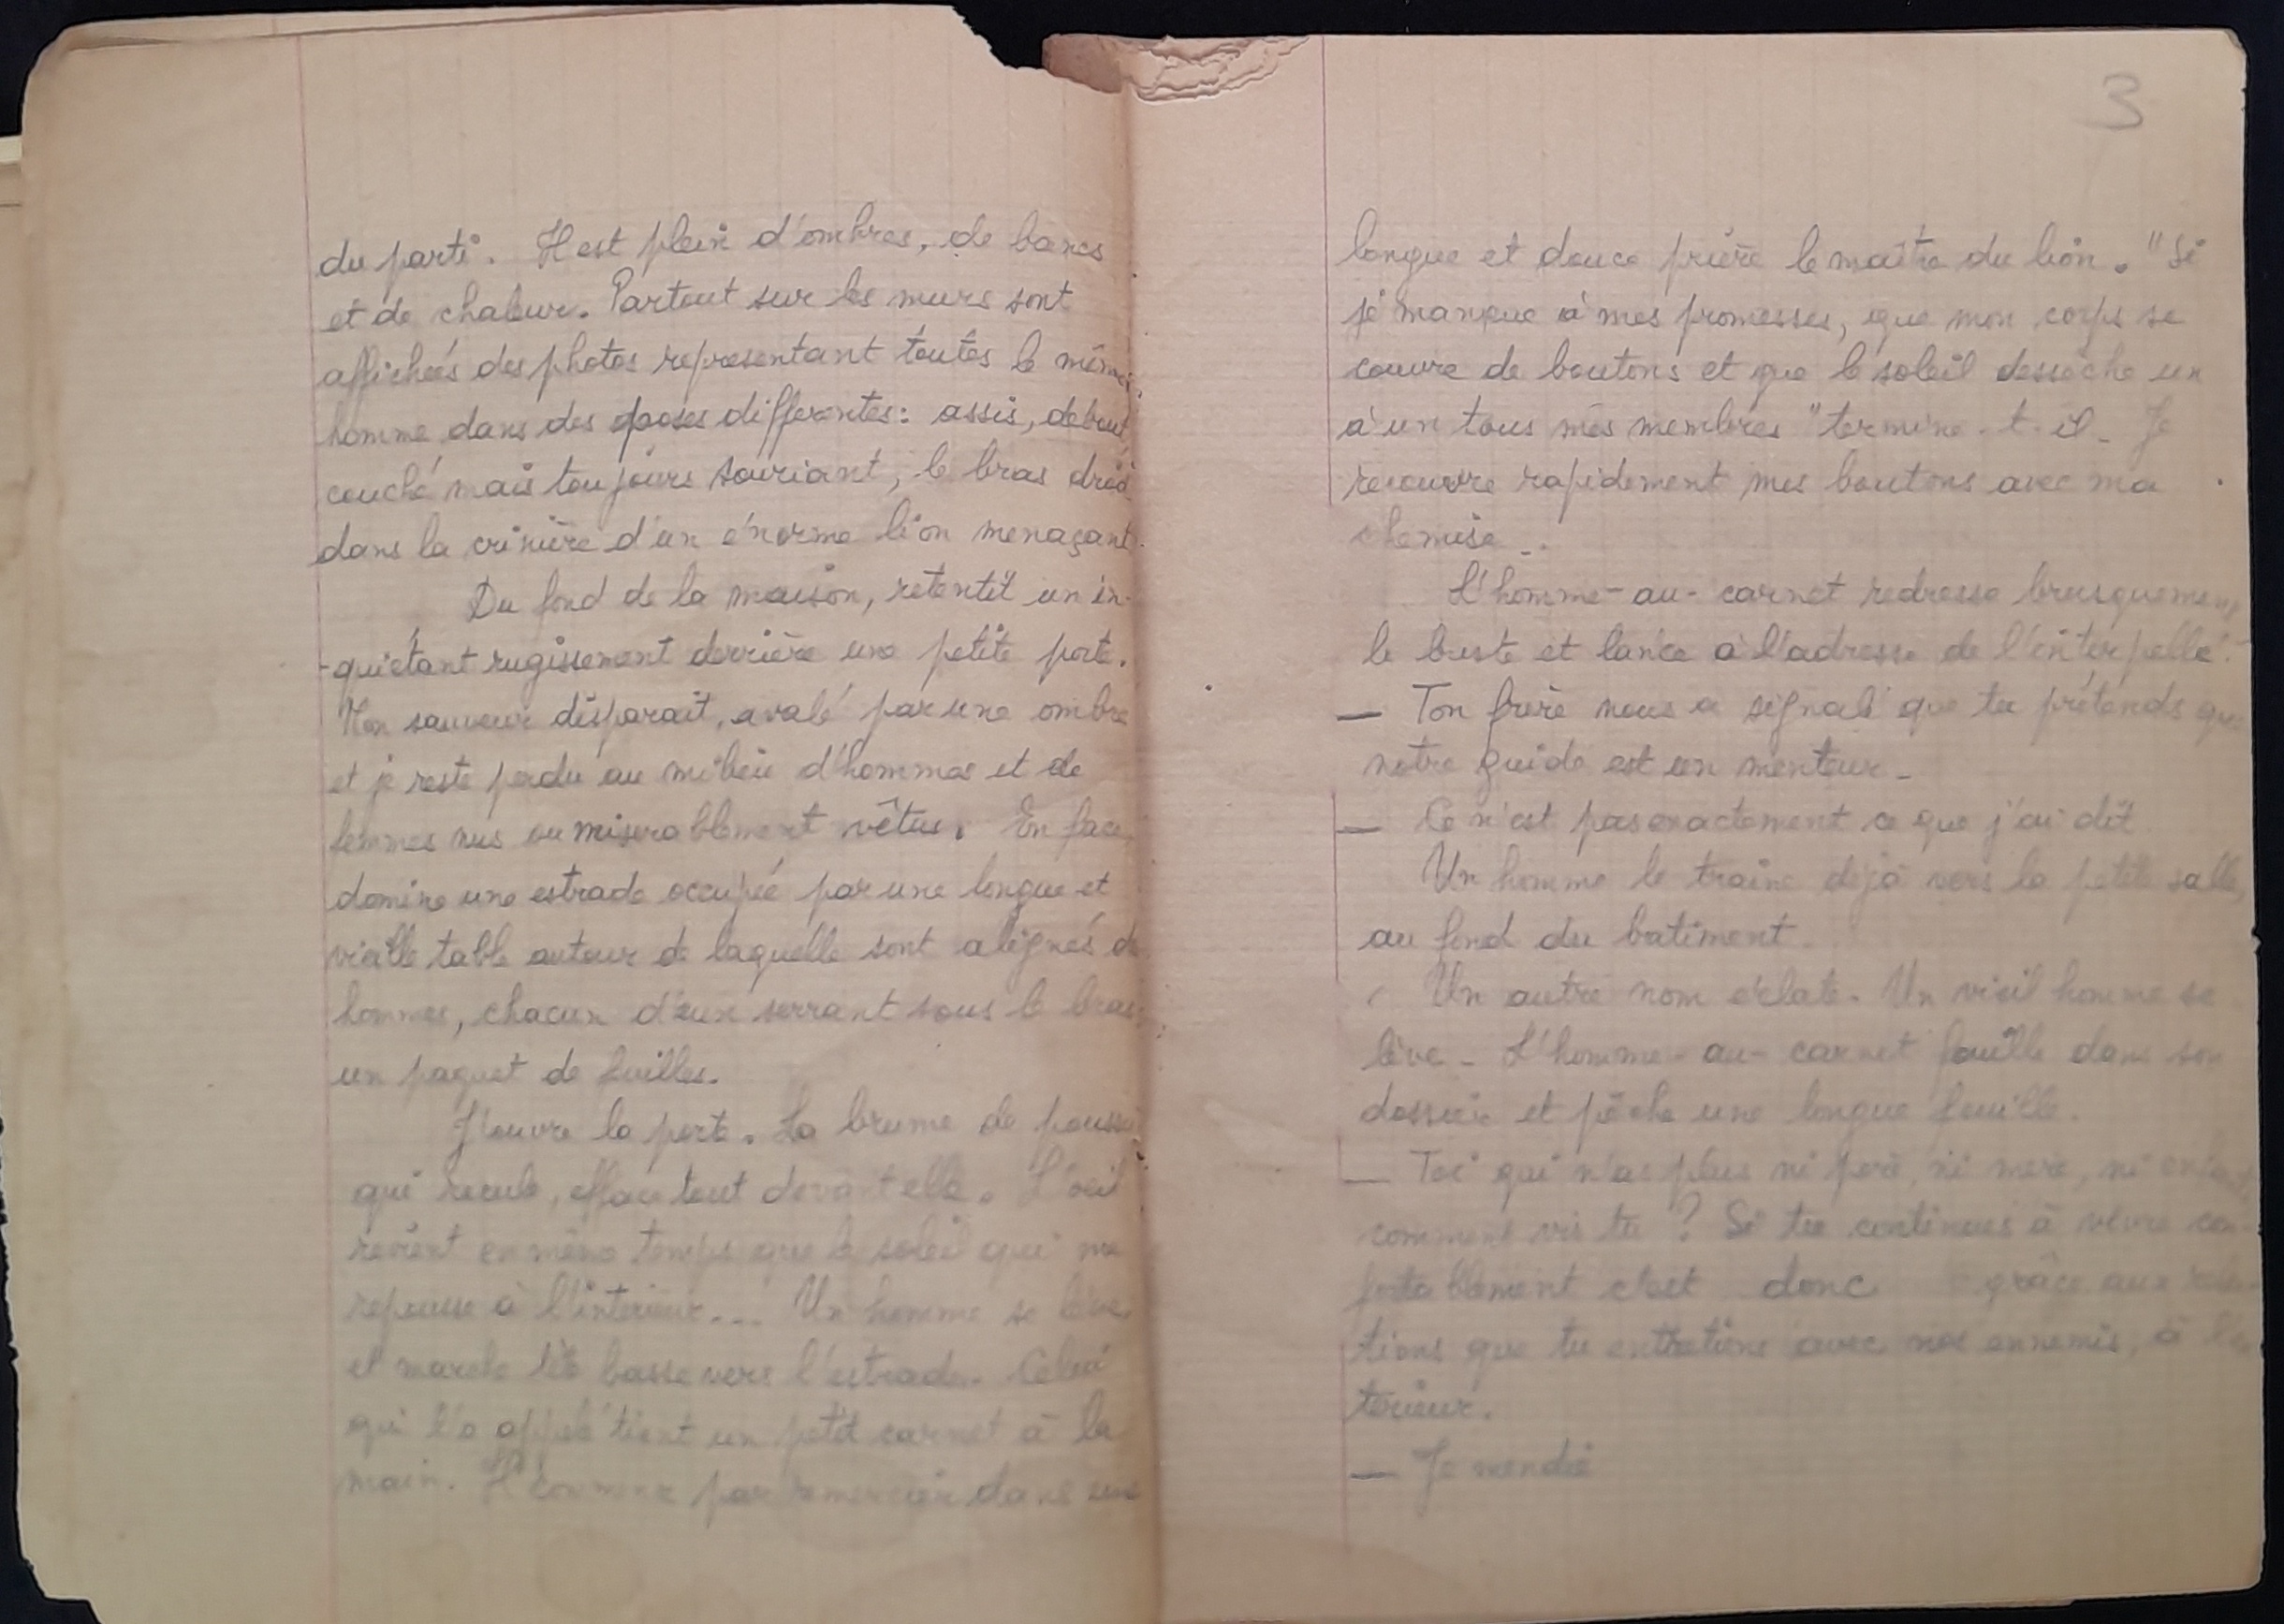 du parti. Il est plein d'ombres, de bancs
et de chaleur. Partout sur les murs sont
affichées des photos representant toutes le même
homme dans des poses differentes: assis, debout,
couché mais toujours souriant, le bras droit
dans la crinière d'un énorme lion menaçant.
Du fond de la maison, retentit un in-
-quiétant rugissement derrière une petite porte.
Mon sauveur disparait, avalé par une ombre
et je reste perdu au milieu d'hommes et de
femmes nus ou miserablement vêtus. En face,
domine une estrade occupée par une longue et
vieille table autour de laquelle sont alignés
hommes, chacun d'eux serrant sous le bras
un paquet de feuilles.
J'ouvre la porte. La brume de
qui recule, efface tout devant elle. L'oeil
revient en même temps que le soleil qui me
repousse à l'interieur... Un homme se lève
et marche tête basse vers l'estrade. Celui
qui l'a appelé tient un petit carnet à la
main. Il commence par remercier dans une
3
longue et douce prière le maître du lion. "Si
je manque à mes promesses, que mon corps se
couvre de boutons et que le soleil dessèche un
à un tous mes membres" termine-t-il. Je
recouvre rapidement mes boutons avec ma
chemise..
L'homme-au-carnet redresse brusquement
le buste et lance à l'adresse de l'interpellé:
— Ton frère nous a signalé que tu prétends que
notre guide est un menteur.
— Ce n'est pas exactement ce que j'ai dit
Un homme le traine déjà vers la petite salle,
au fond du batiment.
Un autre nom éclate. Un vieil homme se
lève. L'homme-au-carnet fouille dans son
dossier et pêche une longue feuille.
— Toi qui n'as plus ni père, ni mère, ni
comment vis tu? Si tu continues à vivre con-
fortablement c'est donc grâce aux
tions que tu entretiens avec nos ennemis, à
terieur.
— Je mendie